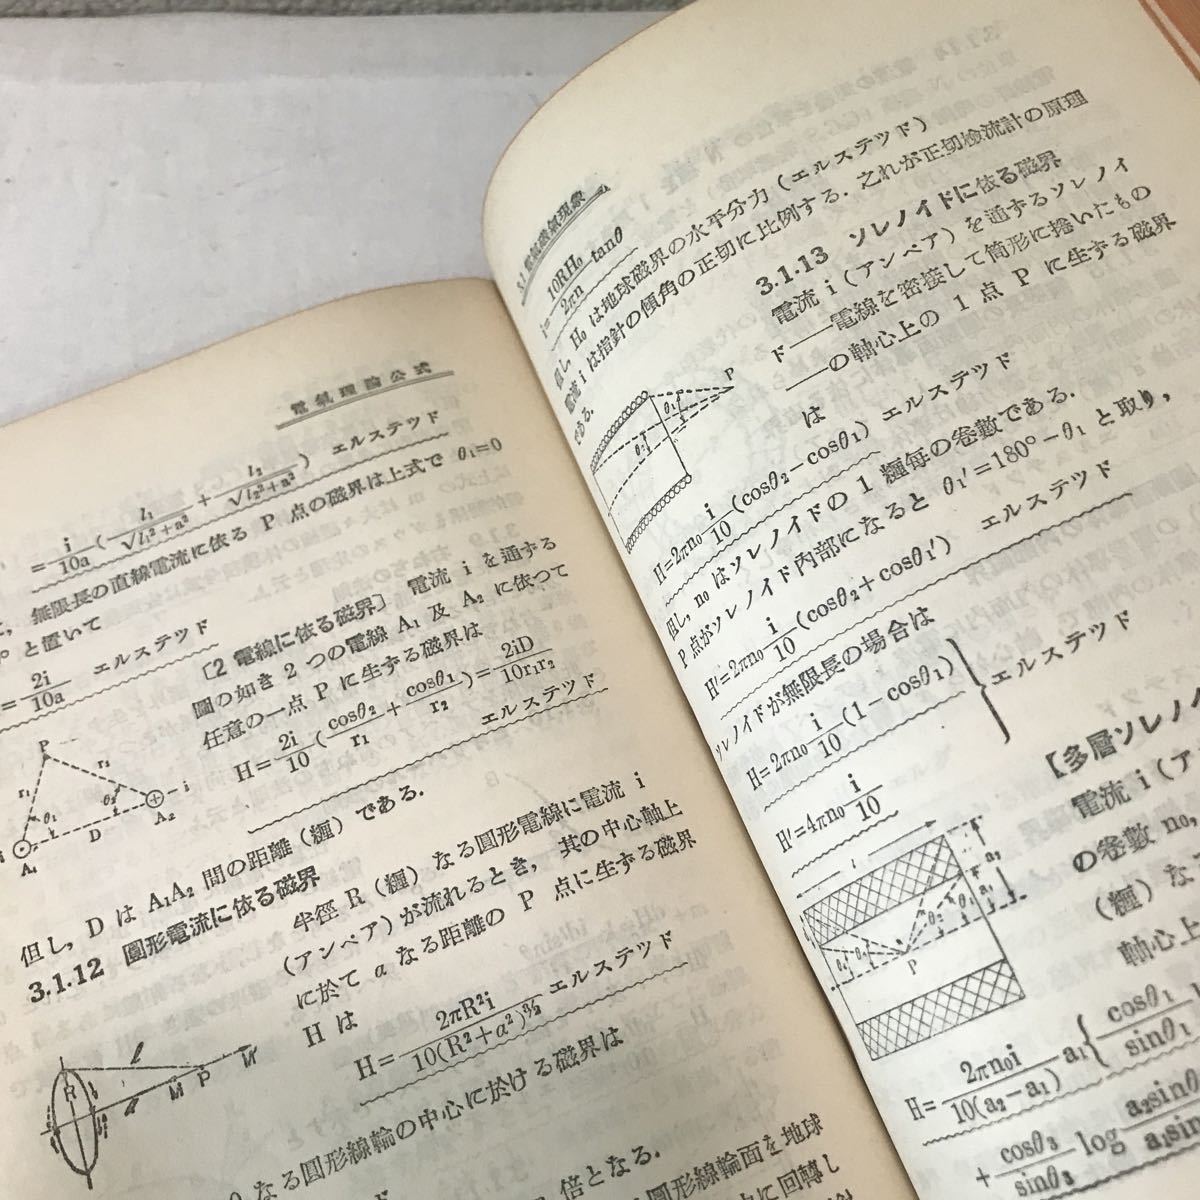 電氣理論公式
=i/10a(l₁/√l₁²+a² + l₂/√l₂²+a²) エルステツド
無限長の直線電流に依る P 点の磁界は上式で θ₁=0
° と置いて
=2i/10a エルステツド
〔2 電線に依る磁界〕 電流 i を通ずる
圖の如き 2 つの電線 A₁ 及 A₂ に依つて
任意の一点 P に生ずる磁界は
H=2i/10(cosθ₂/r₁+cosθ₁/r₂)=2iD/10r₁r₂
エルステツド
P
r₁
r₂
θ₁
θ₂
D
A₁
A₂
i
但し, D は A₁A₂ 間の距離 (糎) である.
3.1.12 圓形電流に依る磁界
半徑 R (糎) なる圓形電線に電流 i
(アンペア) が流れるとき, 其の中心軸上
に於て a なる距離の P 点に生ずる磁界
H は
H=2πR²i/10(R²+a²)^3/2 エルステツド
R
P
なる圓形線輪の中心に於ける磁界は
倍となる.
圓形線輪面を地球
に回轉し
3.1 電氣磁氣現象
i=10RH₀/2πn tanθ
但し, H₀ は地球磁界の水平分力 (エルステツド)
電流 i は指針の傾角の正切に比例する. 之れが正切檢流計の原理
である.
3.1.13 ソレノイドに依る磁界
電流 i (アンペア) を通ずるソレノイ
ド――電線を密接して筒形に捲いたもの
――の軸心上の 1 点 P に生ずる磁界
は
P
θ₁
H=2πn₀ i/10(cosθ₂−cosθ₁) エルステツド
但し, n₀ はソレノイドの 1 糎毎の巻數である.
P 点がソレノイド内部になると θ₁′=180°−θ₁ と取り,
H′=2πn₀ i/10(cosθ₂+cosθ₁′) エルステツド
ソレノイドが無限長の場合は
H=2πn₀ i/10(1−cosθ₁)
H′=4πn₀ i/10
エルステツド
【多層ソレノイ
電流 i (ア
の巻數 n₀,
(糎) な
軸心上
P
a₁
a₂
H=2πn₀i/10(a₂−a₁) a₁{cosθ₁/sinθ₁
+cosθ₃/sinθ₃ log a₂sinθ/a₁sin